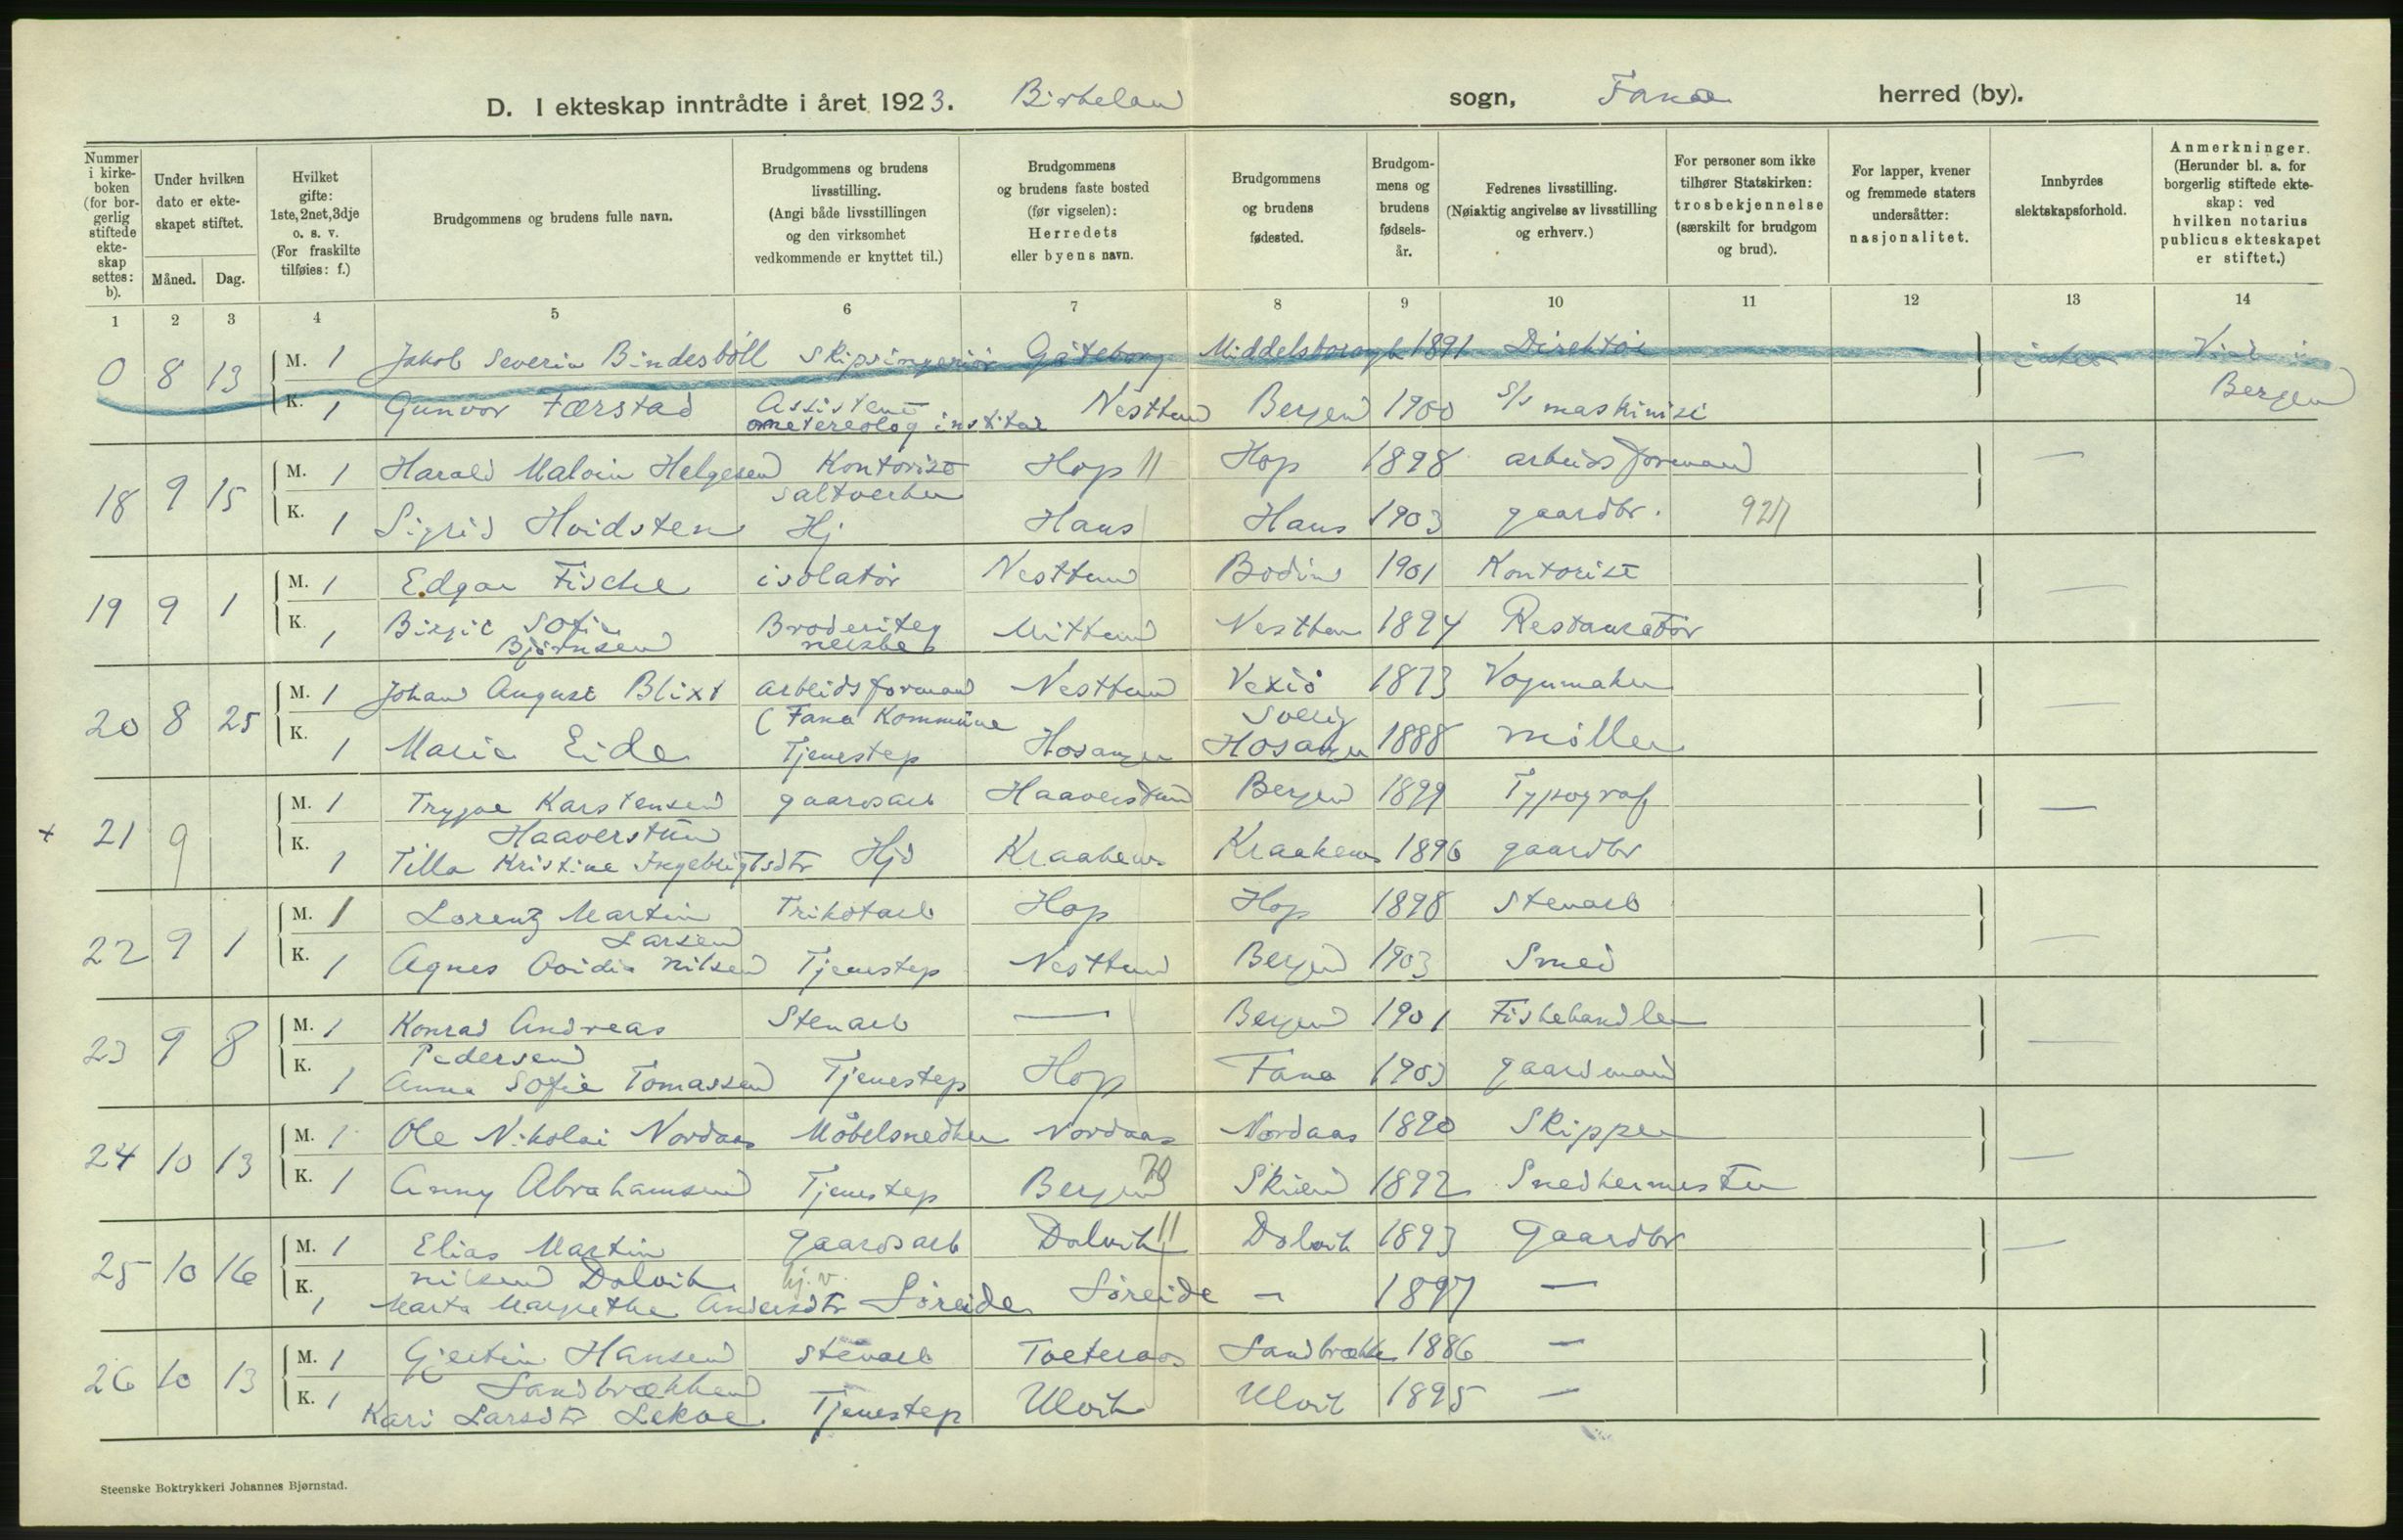 D. I ekteskap inntrådte i året 1923. Birkeland sogn, Fana herred (by).
Nummer i kirke-boken (for bor-gerlig stiftede ekte-skap settes: b).
Under hvilken dato er ekte-skapet stiftet.
Måned. Dag.
Hvilket gifte: 1ste, 2net, 3dje o. s. v. (For fraskilte tilføies: f.)
Brudgommens og brudens fulle navn.
Brudgommens og brudens livsstilling. (Angi både livsstillingen og den virksomhet vedkommende er knyttet til.)
Brudgommens og brudens faste bosted (før vigselen): Herredets eller byens navn.
Brudgommens og brudens fødested.
Brudgom-mens og brudens fødsels-år.
Fedrenes livsstilling. (Nøiaktig angivelse av livsstilling og erhverv.)
For personer som ikke tilhører Statskirken: trosbekjennelse (særskilt for brudgom og brud).
For lapper, kvener og fremmede staters undersåtter: nasjonalitet.
Innbyrdes slektskapsforhold.
Anmerkninger. (Herunder bl. a. for borgerlig stiftede ekte-skap: ved hvilken notarius publicus ekteskapet er stiftet.)
1 2 3 4 5 6 7 8 9 10 11 12 13 14
0 8 13 M. 1 Jakob Severin Bindesböll Skipsingeniör Göteborg Middelsborough 1891 Direktör intet Viet i
K. 1 Gunvor Færstad Assistent Nesttun Bergen 1900 S/S maskinist Bergen
metereolog institut
18 9 15 M. 1 Harald Malvin Helgesen Kontorist Hop 11 Hop 1898 arbeidsformand —
saltverket
K. 1 Sigrid Hvidsten Hj Haus Haus 1903 gaardbr. 921
19 9 1 M. 1 Edgar Fische isolatör Nesttun Bodin 1901 Kontorist —
K. 1 Birgit Sofie Mittun Nesttun 1894 Restauratör
Björnsen
20 8 25 M. 1 Johan August Blixt arbeidsformand Nesttun Vexiö 1873 Vognmaker —
( Fana Kommune
K. 1 Marie Eide Tjenestep Hosanger Hosanger 1888 möller
× 21 9 M. 1 Trygve Karstensen gaardsarb Haaverstun Bergen 1899 Typograf —
Haaverstun
K. 1 Tilla Kristine Ingebrigtsdtr Hjd Kraaken Kraaken 1896 gaardbr
22 9 1 M. 1 Lorentz Martin Trikotarb Hop Hop 1898 Stenarb —
Larsen
K. 1 Agnes Ovidia Nilsen Tjenestep Nesttun Bergen 1903 Smed
23 9 8 M. 1 Konrad Andreas Stenarb — Bergen 1901 Fiskehandler —
Pedersen
K. 1 Anna Sofie Tomassen Tjenestep Hop Fana 1903 gaardmand
24 10 13 M. 1 Ole Nikolai Nordaas Möbelsnedker Nordaas Nordaas 1890 Skipper —
K. 1 Anny Abrahamsen Tjenestep Bergen Skien 1892 Snedkermester
25 10 16 M. 1 Elias Martin gaardsarb Dolvik 11 Dolvik 1893 Gaardbr —
Nilsen Dolvik hj.v.
K. 1 Marta Margrethe Andersdtr Söreide Söreide — 1897 —
26 10 13 M. 1 Gjertin Hansen stenarb Tveteraas Sandbrekke 1886 —
Sandbrækken
K. 1 Kari Larsdtr Lekve Tjenestep Ulvik Ulvik 1895 —
Steenske Boktrykkeri Johannes Bjørnstad.